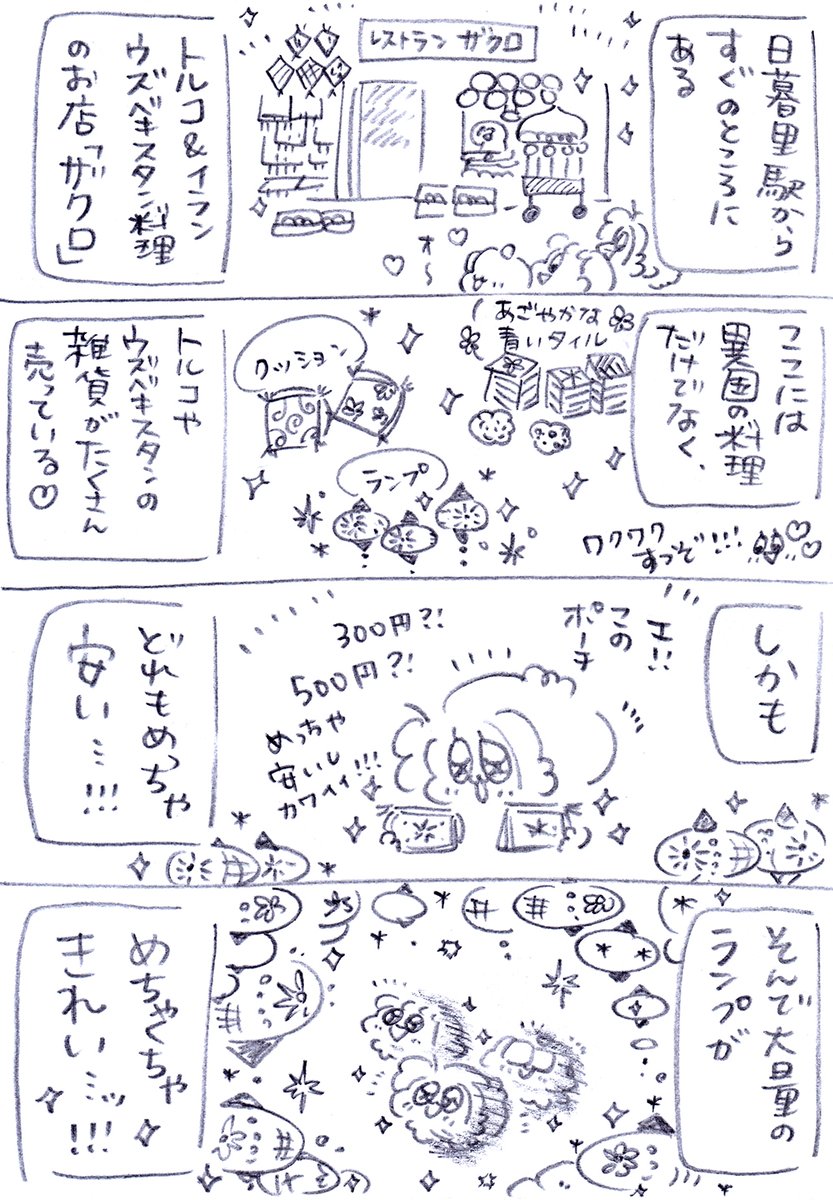 日暮里駅から
すぐのところに
ある
レストラン ザクロ
オ〜
トルコ&イラン
ウズベキスタン料理
のお店「ザクロ」
ここには
異国の料理
だけでなく、
あざやかな
青いタイル
クッション
ランプ
ワクワク
すっぞ!!!
トルコや
ウズベキスタンの
雑貨がたくさん
売っている♡
しかも
エ!!
この
ポーチ
300円?!
500円?!
めっちゃ
安いし
カワイイ!!!
どれもめっちゃ
安い…!!!
そんで大量の
ランプが
めちゃくちゃ
きれい…ッ!!!